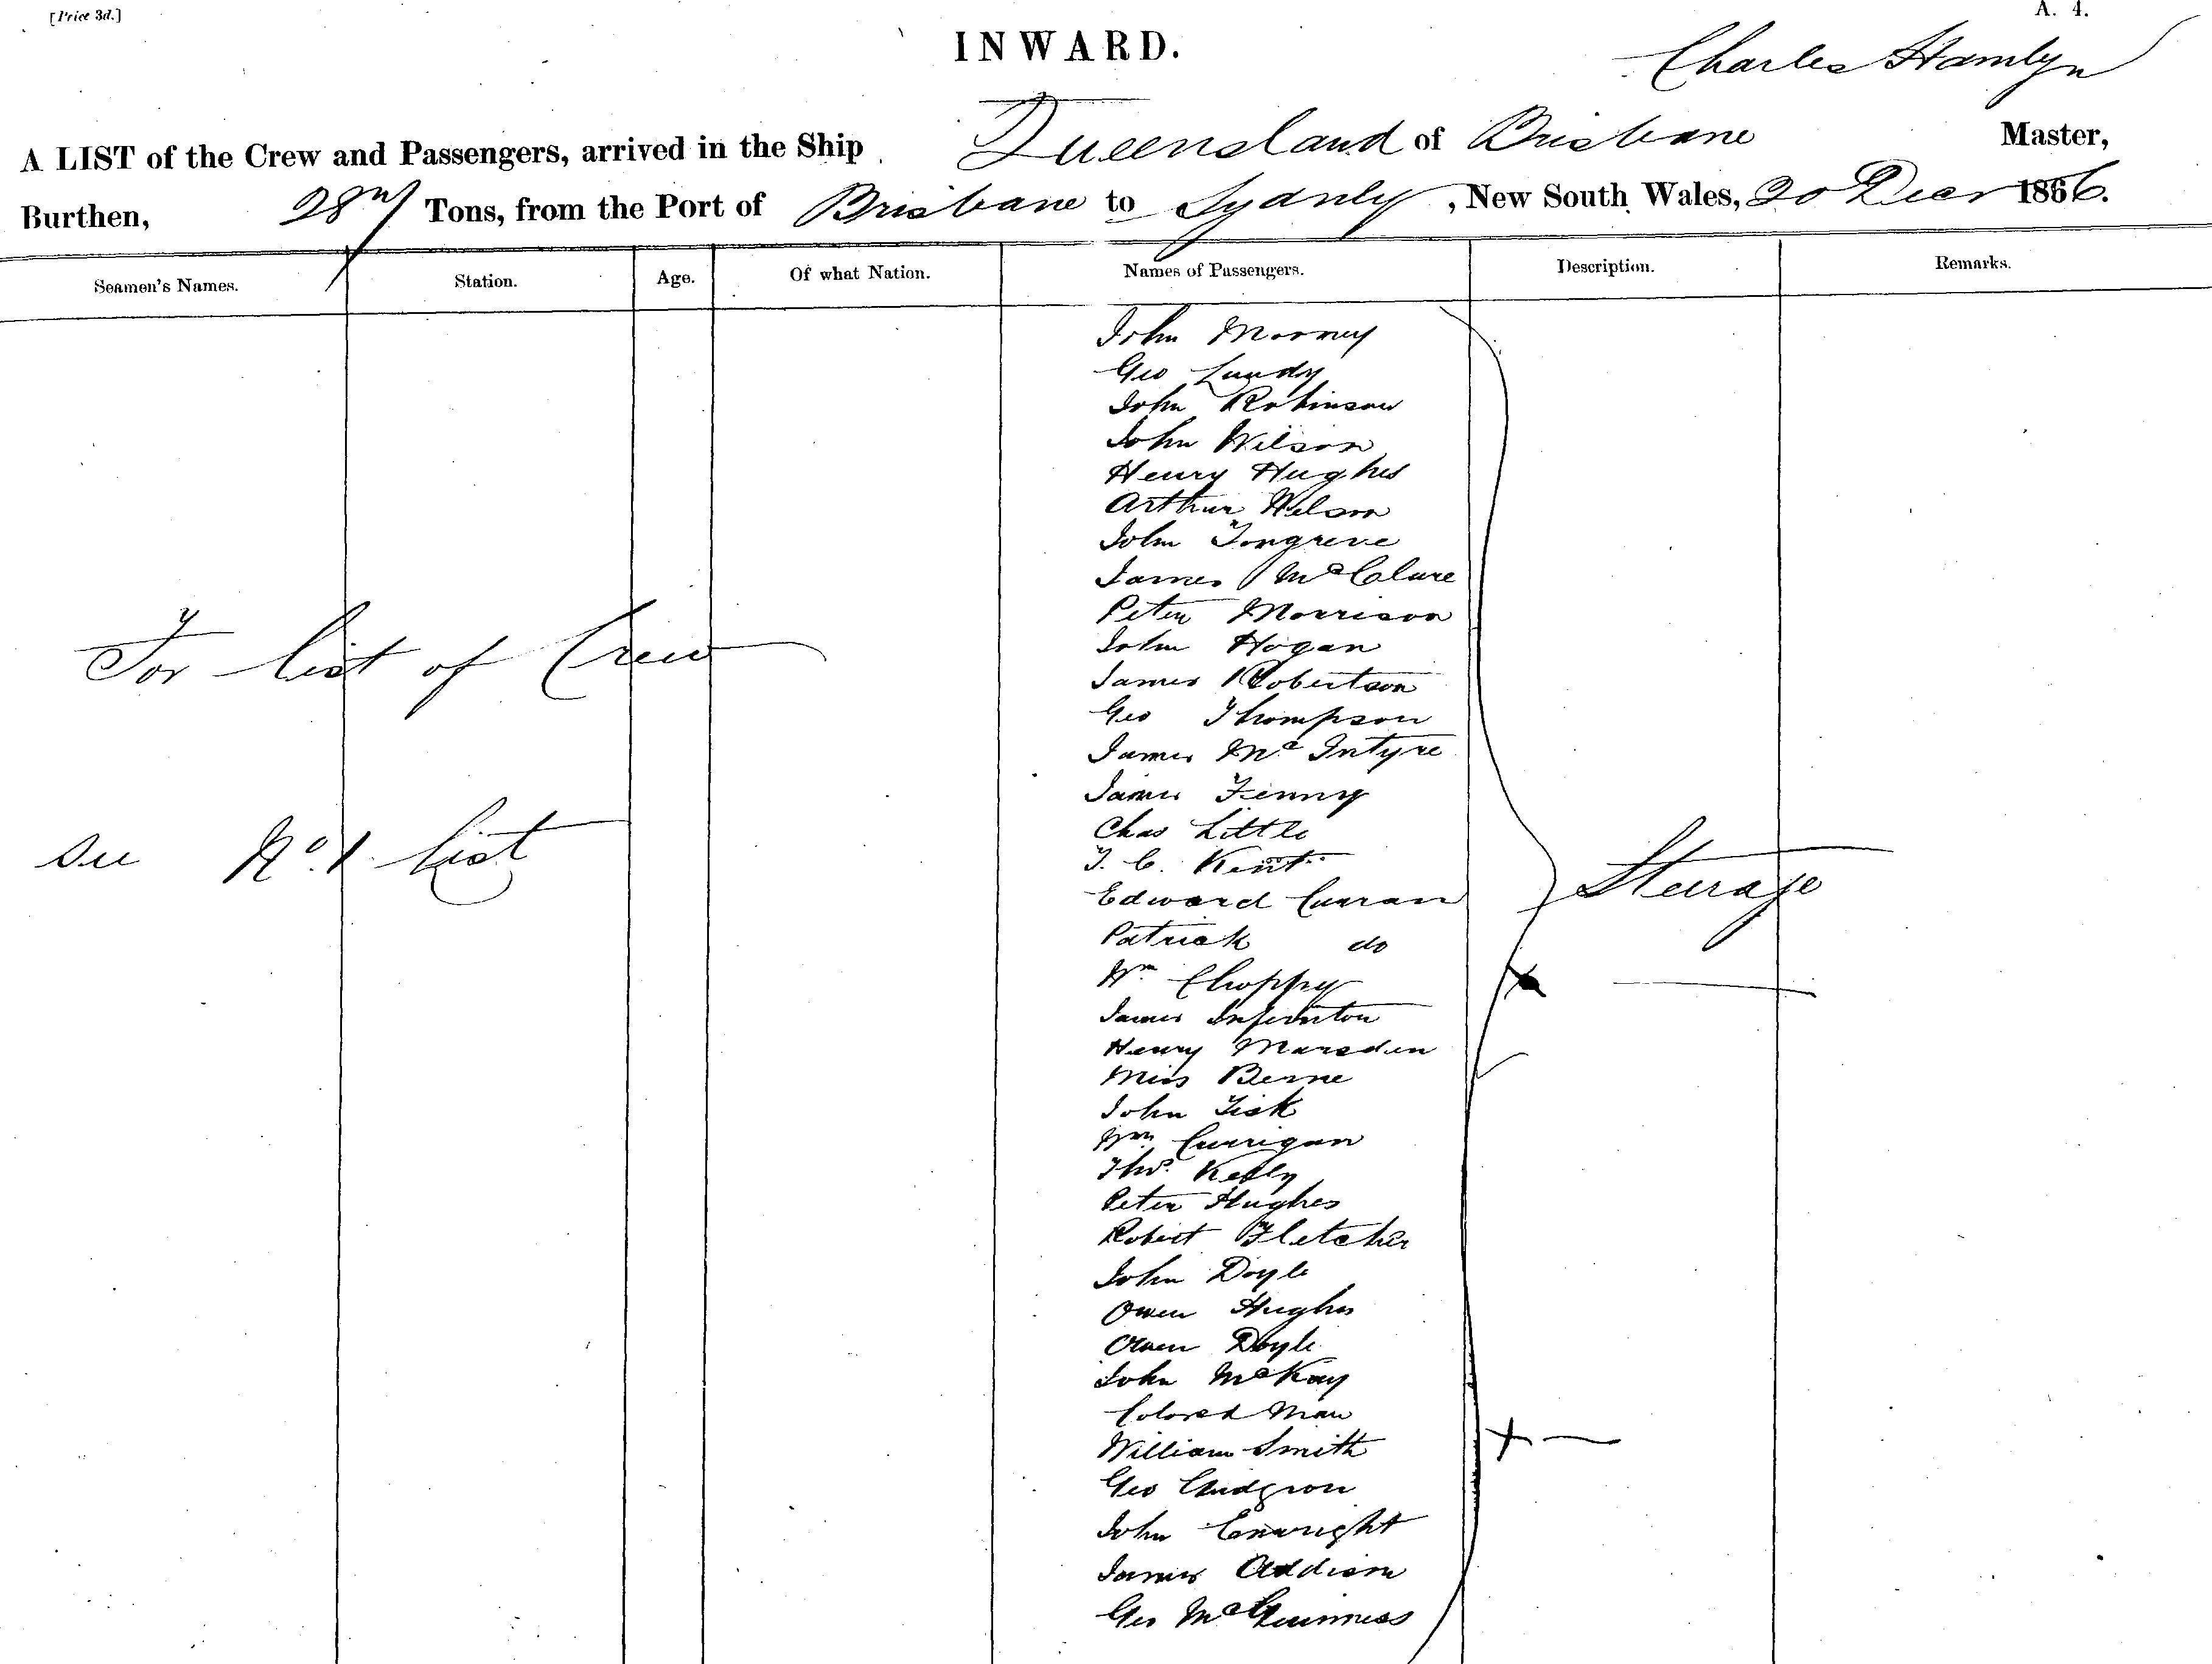 [Price 3d.]
A. 4.
INWARD.
Charles Hamlyn
A LIST of the Crew and Passengers, arrived in the Ship Queensland of Brisbane Master,
Burthen, Tons, from the Port of Brisbane to Sydney, New South Wales, 20 Decr 1866.
Seamen's Names. Station. Age. Of what Nation. Names of Passengers. Description. Remarks.
John
Geo Lundy
John Robinson
John Wilson
Henry Hughes
Arthur Wilson
John
James McClure
Peter Morrison
For list of Crew
John Hogan
James Robertson
Geo Thompson
James McIntyre
James Fenny
Chas Little
See No. 1 list
T. C. Kent
Steerage
Edward Curran
Patrick do
Wm
James
Henry Marsden
Miss Berne
John Fisk
Wm Currigan
Thos. Kelly
Peter Hughes
Robert Fletcher
John Doyle
Owen Hughes
Owen Doyle
John McKay
Colored Man
William Smith
Geo
John Enwright
James Addison
Geo McGuinness